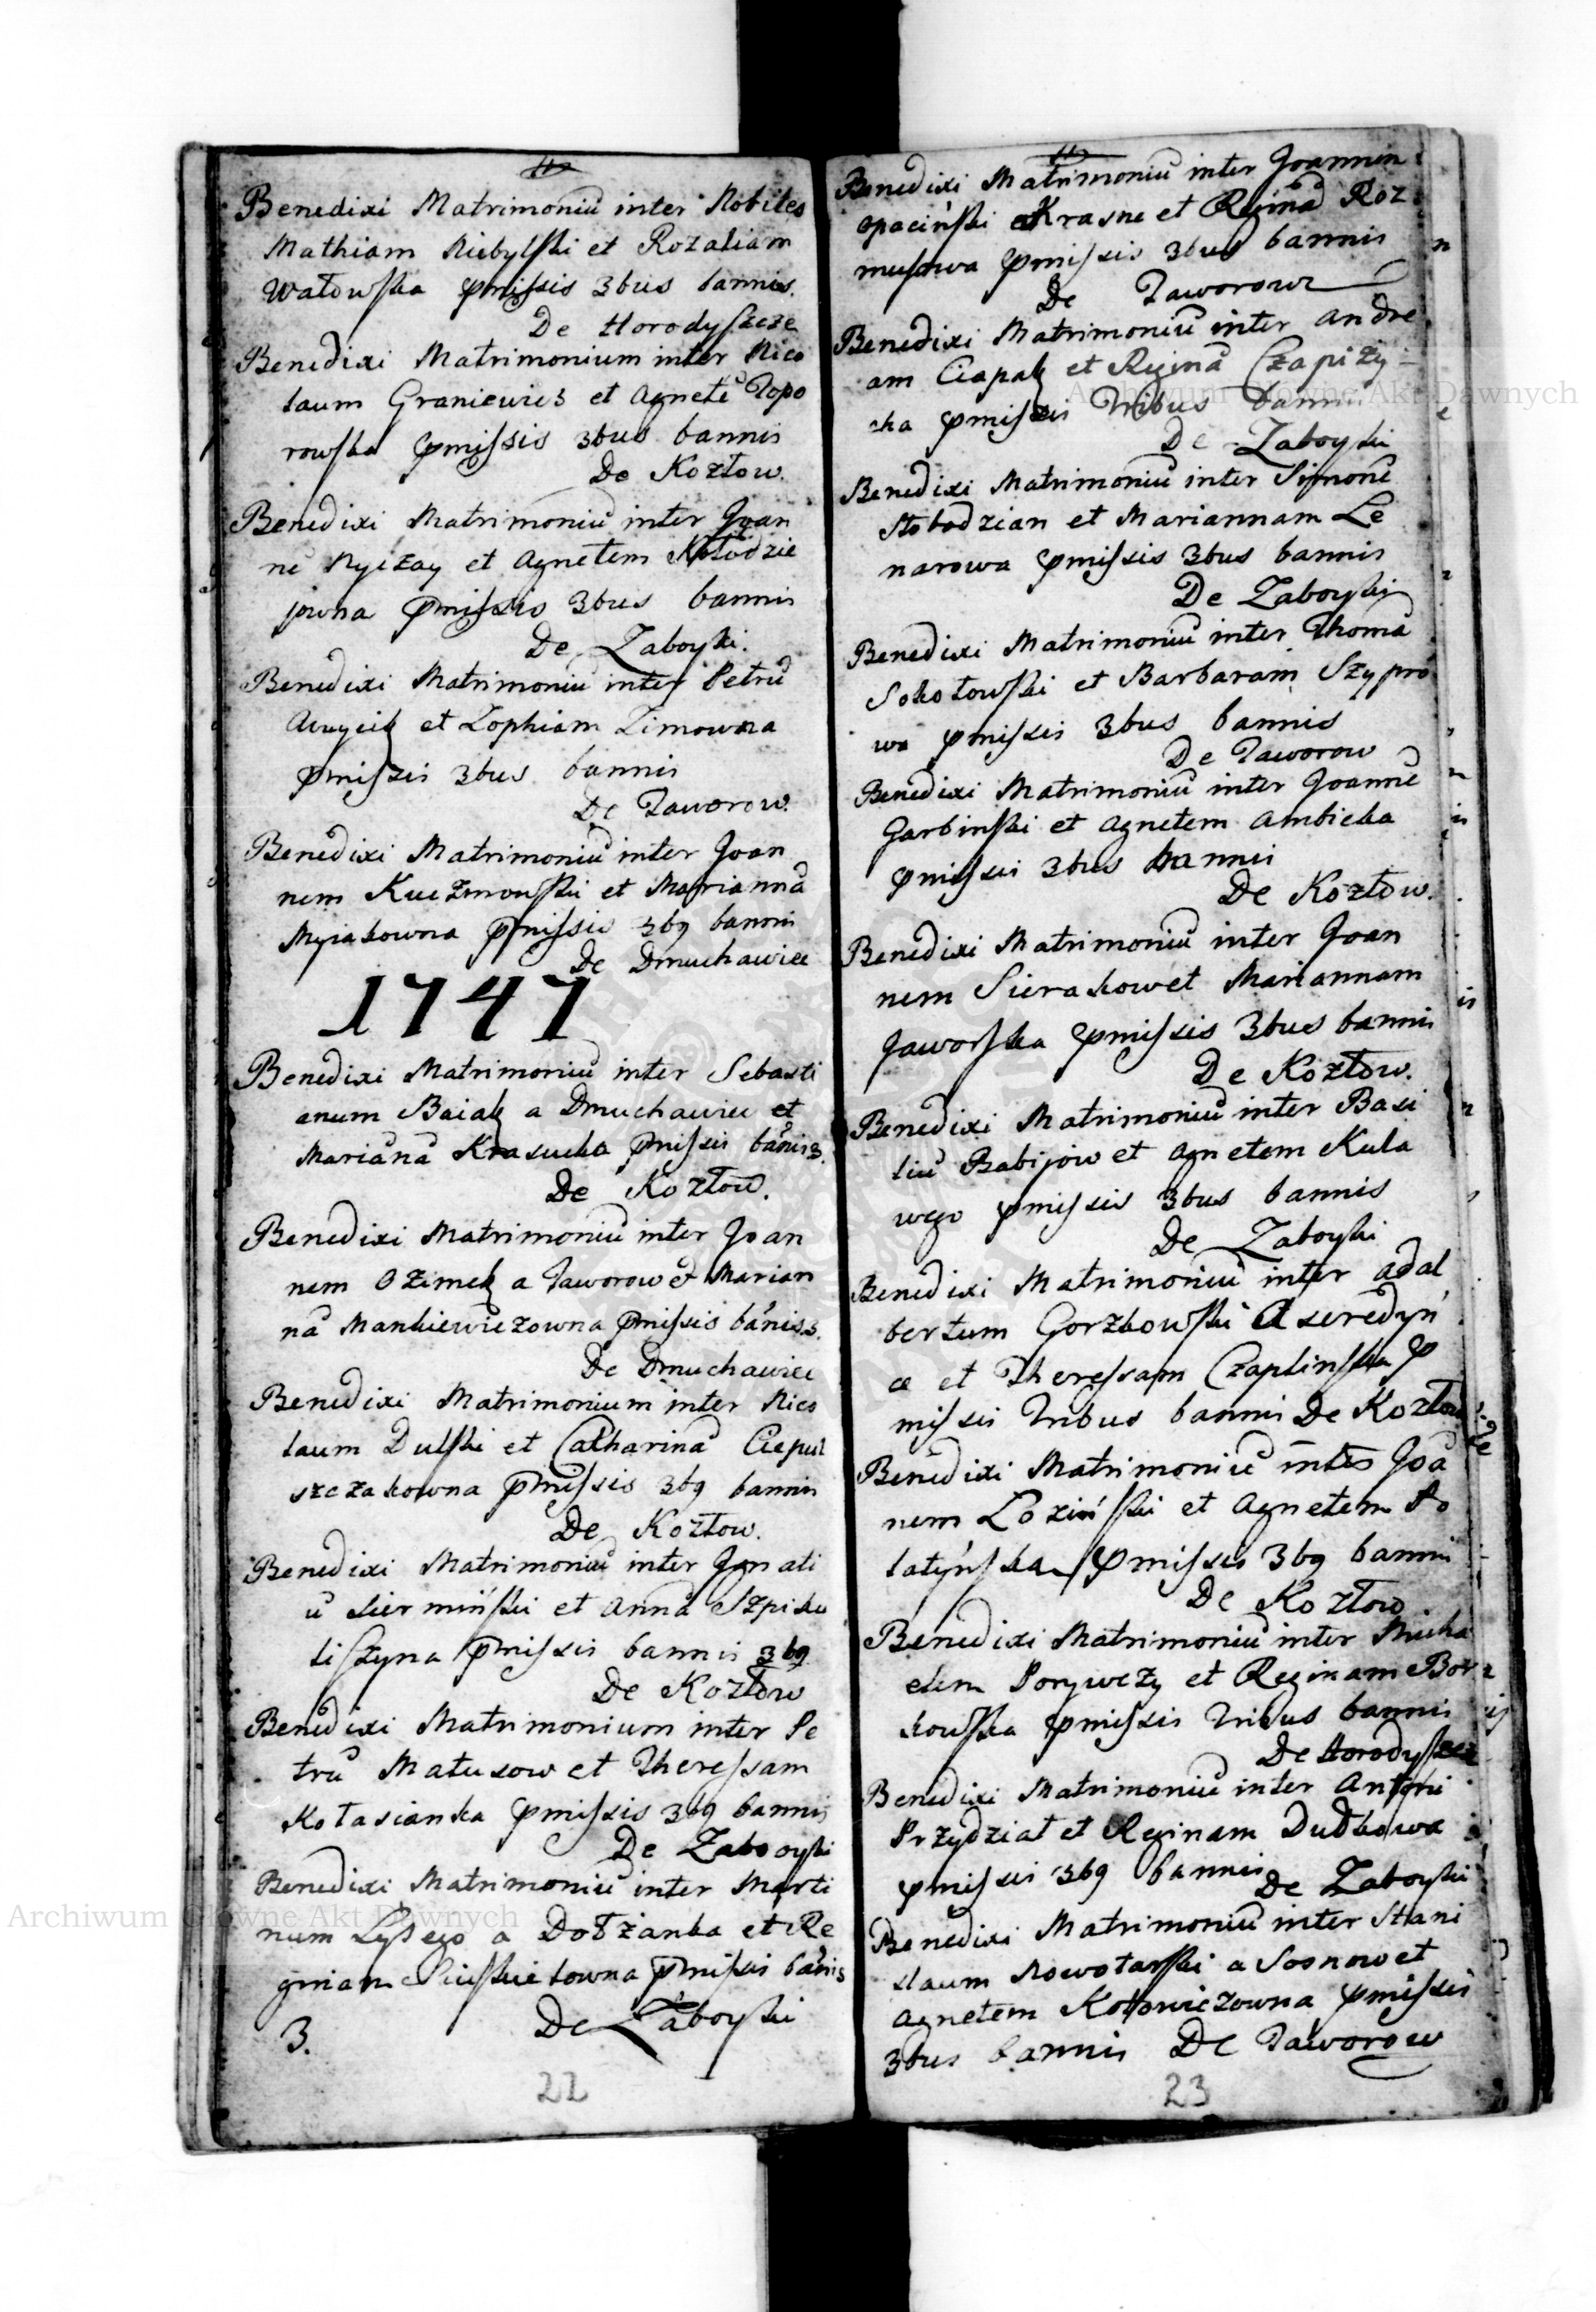 Benedixi Matrimoniū inter Nobiles
Mathiam Niebylski et Rozaliam
Watowska pmissis 3bus bannis.
De Horodyszcze
Benedixi Matrimonium inter Nico
laum Graniewics et Agnetē Topo
rowska pmissis 3bus bannis
De Kozłow.
Benedixi Matrimoniū inter Joan
nē Nyczay et Agnetem Kołodzie
jowna pmissis 3bus bannis
De Zaboyki.
Benedixi Matrimoniū inter Petrū
et Zophiam Zimowna
pmissis 3bus bannis
De Taworow.
Benedixi Matrimoniū inter Joan
nem Kuczmowski et Mariannā
Myiakowna pmissis 3b9 bannis
De Dmuchawiec
1747
Benedixi Matrimoniū inter Sebasti
anum Baiak a Dmuchawiec et
Mariānā Krasucka pmissis bānis 3.
De Kozłow.
Benedixi Matrimoniū inter Joan
nem Ozimek a Taworow et Marian
nā Mankiewiczowna pmissis bānis 3.
De Dmuchawiec
Benedixi Matrimonium inter Nico
laum Dulski et Catharinā Ciepul
szczakowna pmissis 3b9 bannis
De Kozłow.
Benedixi Matrimoniū inter Ignati
ū Siermiński et Annā Szpiku
liszyna pmissis bannis 3b9
De Kozłow
Benedixi Matrimonium inter Pe
trū Matusow et Theressam
Kotasianka pmissis 3b9 bannis
De Zaboyki
Benedixi Matrimoniū inter Marti
num Łysego a Dołżanka et Re
ginam pmissis bānis
3. De Zaboyki
22
Benedixi Matrimoniū inter Joannem
Opaciński a Krasne et Reginā Roz
musowa pmissis 3bus bannis
De Taworow
Benedixi Matrimoniū inter Andre
am Ciapak et Reginā Czapiży
cka pmissis Tribus bannis
De Zaboyki
Benedixi Matrimoniū inter Simonē
Słobodzian et Mariannam Le
narowa pmissis 3bus bannis
De Zaboyki
Benedixi Matrimoniū inter Thomā
Sokołowski et Barbaram Szypro
wa pmissis 3bus bannis
De Taworow
Benedixi Matrimoniū inter Joannē
Garbinski et Agnetem Ambicka
pmissis 3bus bannis
De Kozłow.
Benedixi Matrimoniū inter Joan
nem Sierakow et Mariannam
Jaworska pmissis 3bus bannis
De Kozłow.
Benedixi Matrimoniū inter Basi
liū Babijow et Agnetem Kula
wego pmissis 3bus bannis
De Zaboyki
Benedixi Matrimoniū inter Adal
bertum Gorzkowski A seredyń
ce et Theressam Czaplinska p
missis Tribus bannis De Kozłow
Benedixi Matrimoniū inter Joā
nem Loziński et Agnetem Po
latyńska pmissis 3b9 bannis
De Kozłow
Benedixi Matrimoniū inter Micha
elem Porywczy et Reginam Bor
kowska pmissis Tribus bannis
De Horodyszcze
Benedixi Matrimoniū inter Antoni
Przydział et Reginam Dudkowa
pmissis 3b9 bannis De Zaboyki
Benedixi Matrimoniū inter Stani
slaum Nowotarski a Sosnow et
Agnetem Kotowiczowna pmissis
3bus bannis De Taworow
23
Archiwum Główne Akt Dawnych
Archiwum Główne Akt Dawnych